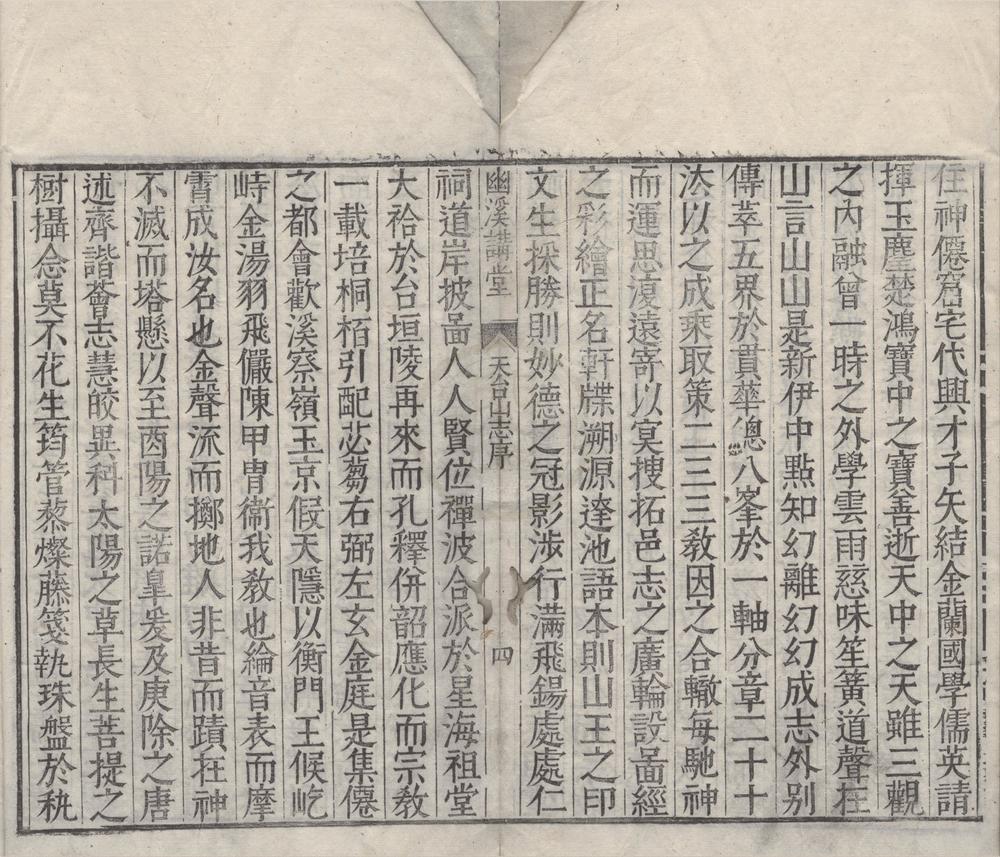 住神僊窟宅代興才子矢結金蘭國學儒英請
揮玉麈楚鴻寶中之寶釜善逝天中之天雖三觀
之內融曾一時之外學雲雨慈味笙簧道聲在
山言山山是新伊中點知幻離幻幻成志外别
傳萃五界於貫華總八峯於一軸分章二十十
汰以之成乘取策二三三敎因之合轍每馳神
而運思敻遠寄以冥搜拓邑志之廣輪設啚經
之彩繪正名軒牒溯源達池語本則山王之印
文生採勝則妙德之冠影涉行滿飛錫處處仁
幽溪講堂 天台山志序 四
祠道岸披啚人人賢位禪波合派於星海祖堂
大祫於台垣陵再來而孔釋併韶應化而宗敎
一載培桐栢引配苾蒭右弼左玄金庭是集僊
之都會歡溪察嶺玉京假天隱以衡門王候屹
峙金湯羽飛儼陳甲冑衞我敎也綸音表而摩
霄成汝名也金聲流而擲地人非昔而蹟在神
不滅而塔懸以至酉陽之諾皇爰及庚除之唐
述齊諧薈志慧皎異科太陽之草長生菩提之
樹攝念莫不花生筠管藜燦藤箋執珠盤於秇